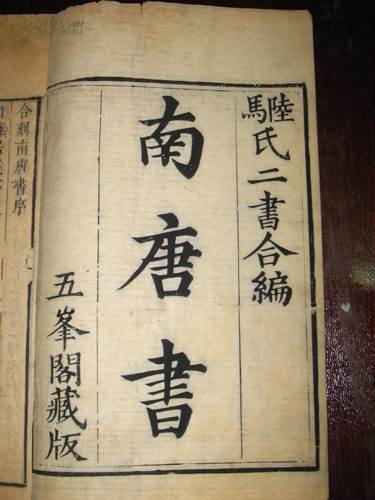 陸馬氏二書合編
南唐書
五峯閣藏版
合刻南唐書序